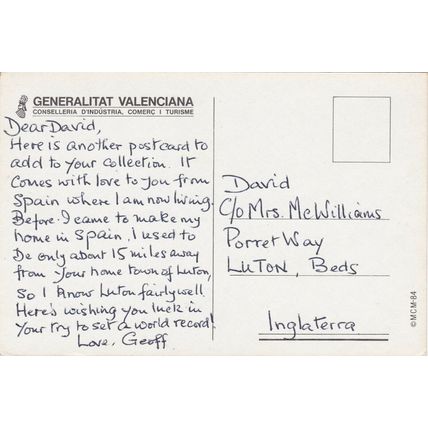 GENERALITAT VALENCIANA
CONSELLERIA D'INDÚSTRIA, COMERÇ I TURISME
Dear David,
Here is another postcard to
add to your collection. It
comes with love to you from
Spain where I am now living.
Before I came to make my
home in Spain, I used to
be only about 15 miles away
from your home town of Luton,
so I know Luton fairly well.
Here's wishing you luck in
your try to set a world record!
Love, Geoff
David
C/o Mrs. McWilliams
Porret Way
LUTON, Beds
Inglaterra
© MCM-84